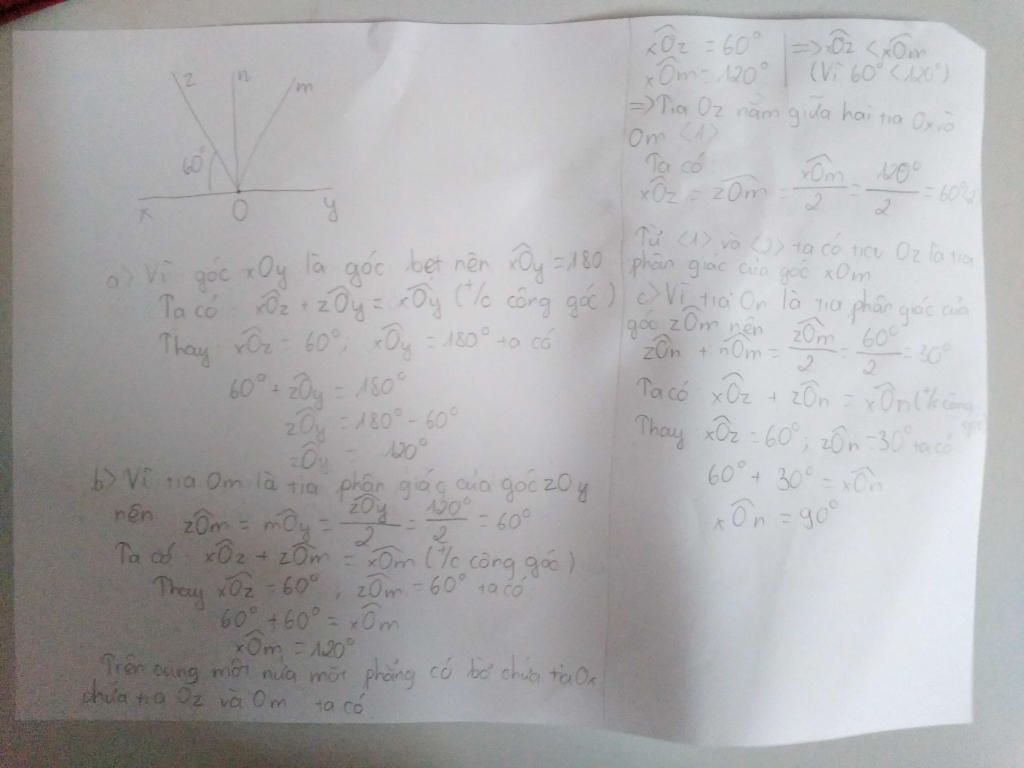 z n m
60°
x O y
a> Vì góc xOy là góc bẹt nên xÔy = 180
Ta có xÔz + zÔy = xÔy (t/c công góc)
Thay xÔz = 60°, xÔy = 180° ta có
60° + zÔy = 180°
zÔy = 180° - 60°
zÔy = 120°
b> Vì tia Om là tia phân giác của góc zOy
nên zÔm = mÔy = zÔy/2 = 120°/2 = 60°
Ta có xÔz + zÔm = xÔm (t/c công góc)
Thay xÔz = 60°, zÔm = 60° ta có
60° + 60° = xÔm
xÔm = 120°
Trên cung một nưa mặt phẳng có bờ chứa tia Ox
chứa tia Oz và Om ta có
xÔz = 60° | => xÔz < xÔm
xÔm = 120° | (Vì 60° < 120°)
=> Tia Oz nằm giữa hai tia Ox và
Om <1>
Ta có
xÔz = zÔm = xÔm/2 = 120°/2 = 60° <2>
Từ <1> và <2> ta có tia Oz là tia
phân giác của góc xOm
c> Vì tia On là tia phân giác của
góc zÔm nên
zÔn + nÔm = zÔm/2 = 60°/2 = 30°
Ta có xÔz + zÔn = xÔn (t/c công
góc)
Thay xÔz = 60°; zÔn = 30° ta có
60° + 30° = xÔn
xÔn = 90°